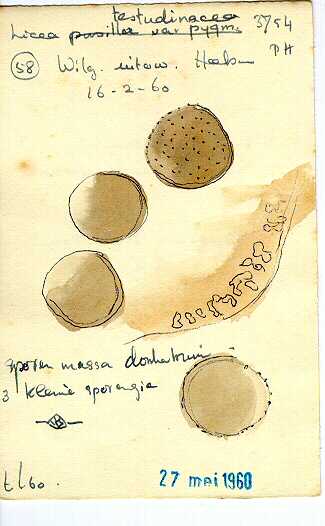 testudinacea 3754
Licea pusilla var pygm. PH
58 Wilg. Heelsum
16-2-60
sporen massa donkerbruin
3 kleine sporangia
t/60.
27 mei 1960